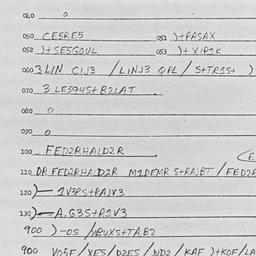 040 0
050 CE5RE5 051 )+PASAX
052 )+SE5GOUL 053 )+XIP2K
060 3LIN C1J3 / LINJ3 QPL / S+TR1S+ )
070 3 LE594S+B2LAT
080 0
090 0
100 FED2RHA1D2R
110 DR FED2RHA1D2R M1DEMR S+RAJBT / FED2R
120 )— 1V3RS+PAJV3
130 )— A.G3S+P2V3
900 )-OS / NRUXS+TAB2
900 VO5F / YES / D2ES / ND2 / KAF )+KOF / LA